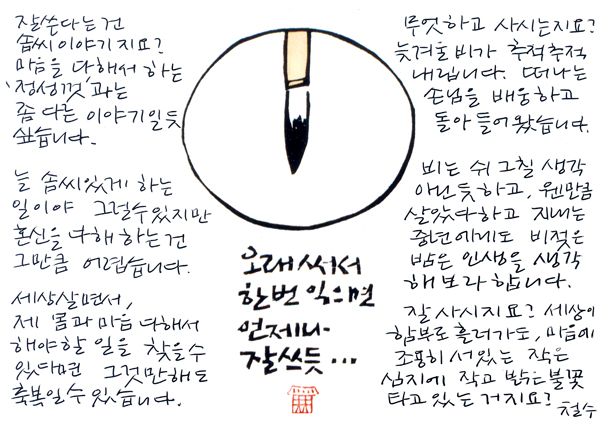 잘쓴다는건
솜씨이야기지요?
마음을 다해서 하는
'정성껏'과는
좀 다른 이야기일듯
싶습니다.
늘 솜씨있게 하는
일이야 그럴수있지만
혼신을 다해 하는건
그만큼 어렵습니다.
세상살면서,
제 몸과 마음 다해서
해야할 일을 찾을수
있다면 그것만해도
축복일수있습니다.
오래 써서
한번 익으면
언제나
잘쓰듯...
무엇하고 사시는지요?
늦겨울비가 추적추적
내립니다. 떠나는
손님을 배웅하고
돌아 들어왔습니다.
비는 쉬 그칠 생각
아닌듯하고, 웬만큼
살았다하고 지내는
중년에게도 비젖은
밤은 인생을 생각
해보라 합니다.
잘 사시지요? 세상이
함부로 흘러가도, 마음에
조용히 서있는 작은
심지에 작고 밝은불꽃
타고있는거지요?
철수